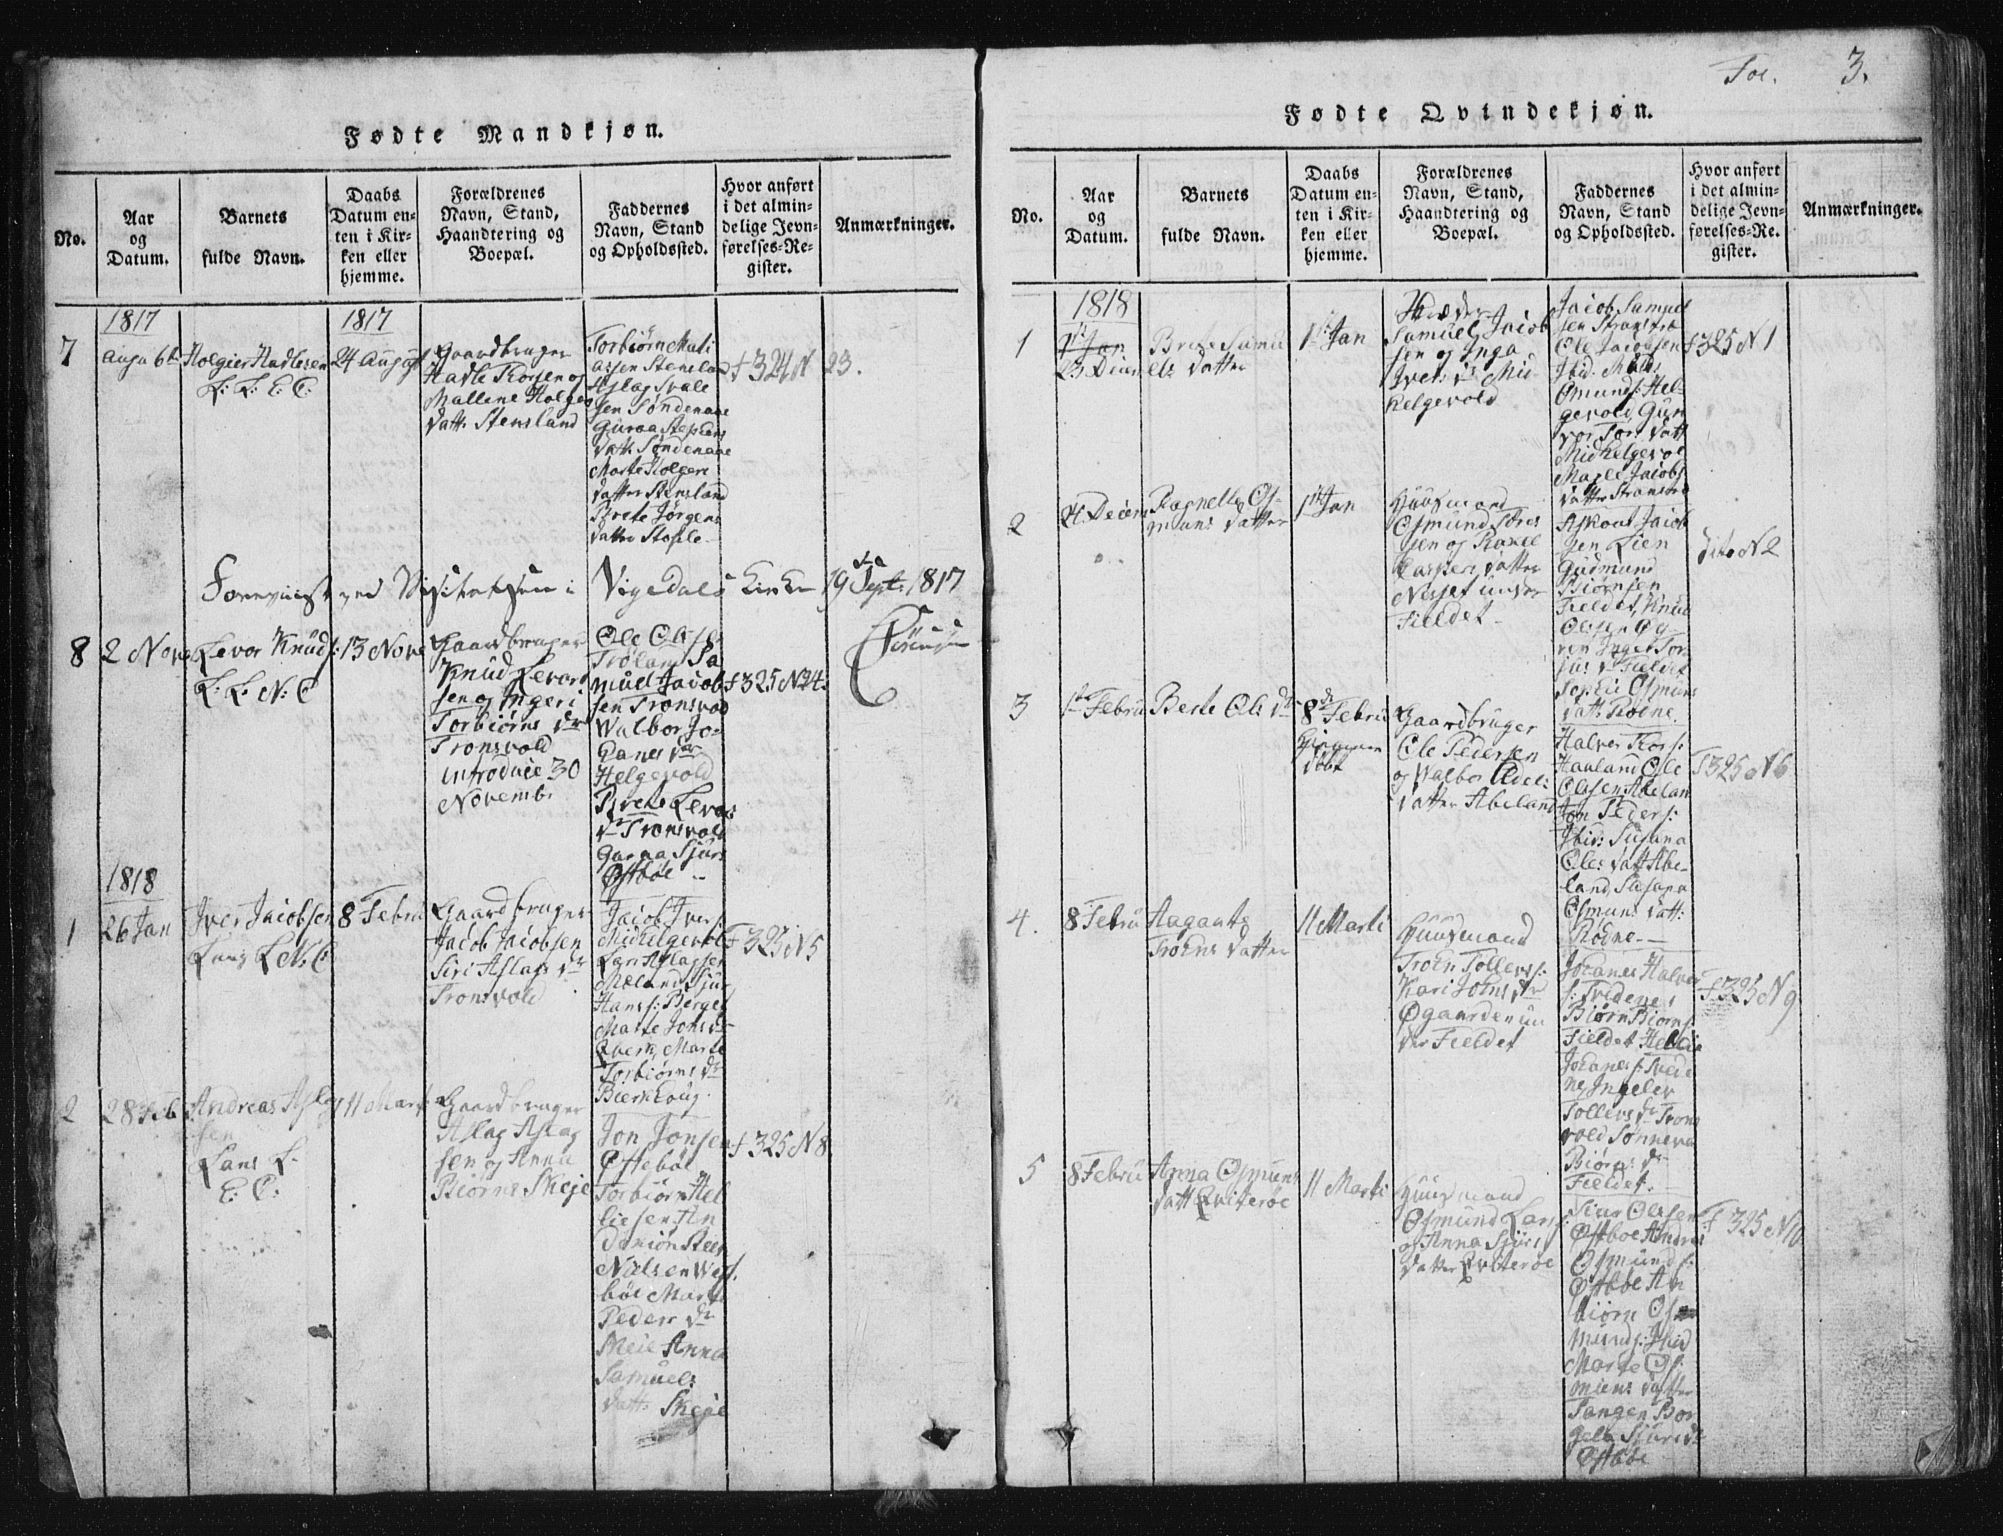 Fødte Mandkjøn.
No.
Aar
og
Datum.
Barnets
fulde Navn.
Daabs
Datum en-
ten i Kir-
ken eller
hjemme.
Forældrenes
Navn, Stand,
Haandtering og
Boepæl.
Faddernes
Navn, Stand
og Opholdssted.
Hvor anført
i det almin-
delige Jevn-
førelses-Re-
gister.
Anmærkninger.
1817
1817
7
Augu 6te
Holgier Hadlesen
L: L: E: C:
24 August
Gaardbruger
Hadle Thorsen og
Mallene Holges
datt: Stensland
Torbiørn Mati
assen Stensland
Aslag Svale
sen Søndenaae
Guroa Stephens
datt: Søndenaae
Marte Holgers
datter Stensland
Brete Jørgens
datter Stople
f 324 N 23.
Foreviist ved Visitatsen i Vigedals Kirke 19 Sept: 1817
8
2 Nove
Levor Knuds:
L: L: N: C
13 Nove
Gaardbruger
Knud Levord
sen og Ingeri
Torbiørns dr
Tronsvold
introduce 30
Novembr
Ole Ols:
Trøland Sa
muel Jacob
sen Tronsvold
Walbor Jo-
hanes dtr
Helgevold
Brete Levors
dr Tronsvold
Guroa Sjurs
Østbøe
f 325 N 24.
1818
1
26 Jan
Iver Jacobsen
L N: C
8 Febru
Gaardbruger
Jacob Jacobsen
Siri Aslags dr
Tronsvold
Jacob Ivers:
Mickelgevol
Lars Aslagsen
Mæland Sjur
Hans: Berge
Marte Jons dr
Qvern Marte
Torbiørns dr
Bierkhoug.
F 325 N 5
2
28 Feb
Andreas Aslag
sen
Lans L.
E: C:
11 Marti
Gaardbruger
Aslag Aslag
sen og Anna
Biørns Skeje
Jon Jonsen
Østebøe
Torbiørn Hel
liesen An
Nielsen West
bøe Marte
Peders dr
Skeie Anna
Samuels
datt: Skeje
f 325 N 8.
Fol. 3.
Fødte Qvindekjøn.
No.
Aar
og
Datum.
Barnets
fulde Navn.
Daabs
Datum en-
ten i Kir-
ken eller
hjemme.
Forældrenes
Navn, Stand,
Haandtering og
Boepæl.
Faddernes
Navn, Stand
og Opholdssted.
Hvor anført
i det almin-
delige Jevn-
førelses-Re-
gister.
Anmærkninger.
1818
1
1st Jan
23 Decem
Brete Samu
els datter
1st Jan
Samuel Jacob
sen og Inga
Ivers dr Mi-
kelgevold
Jacob Samuel
sen
Ole Jacobsen
Ibid: Mons
Osmunds: Hel-
gevold Gun
vor Tors datt
Mickelgevol
Maele Jacobs
datter
f 325 N 1
2
24 Decem
Ragnelle Os-
muns datter
1st Jan
Huusmand
Osmund Lars
sen og Rakel
Caspers datter
Nesset under
Fieldet
Askout Jacob
sen Lien
Gudmund
Biørnsen
Fieldet, Knud
Olsen Øg-
ren Inger Tor
jus dr Fieldet
Sophie Osmuns
datt: Rodne.
dito N 2
3
1ste Febru
Berte Ols dr
8de Febru
Hjemme
døbt
Gaardbruger
Ole Pedersen
og Walbor Edels
datter Abeland
Halvor Thors:
Hauland Osle
Olssen Abelan
Jon Peders:
Ibid: Susana
Oles datt Abe-
land Susana
Osmuns datt:
Rodne.
F 325 N 6
4.
8 Febru
Aagaate
Troens datter
11 Marti
Huusmand
Troen Tollevs:
Kari Johns dr
Øgaarden un
der Fieldet
Johanes Halvor
s: Tvedene,
Biørn Biorns:
Fieldet Hellie
Johanes: Tvede
ne, Ingelev
Tollevs dr Trons
vold Sønneva
Biørns dr
Fieldet.
F 325 N 9
5
8 Febru
Anna Osmuns
datt Qviterøe
11 Marti
Huusmand
Osmund Lars:
og Anna Sjurs
datter Qviterøe
Siur Olssen
Østboe Andreas
Osmunds:
Østbøe An
biørn Os
munds: Ibid
Marte Os
muns datter
Tangen Bor
gele Sjurs dr
Østbøe
F 325 N 10